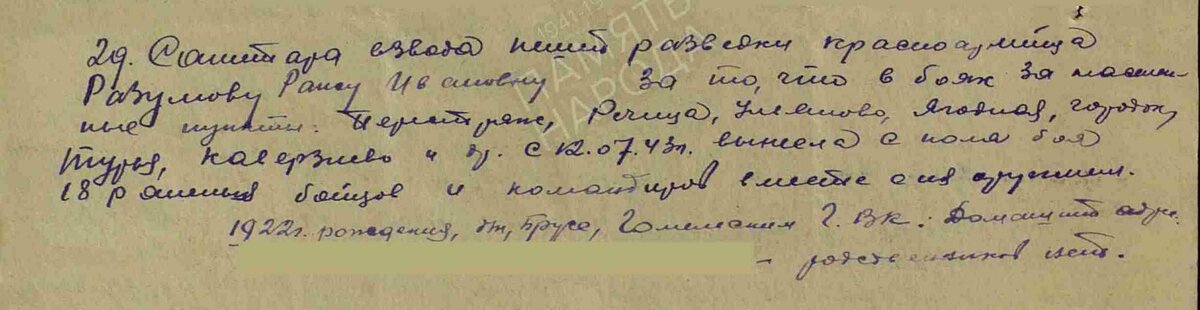 29. Санитара взвода пешей разведки красноармейца
Разумову Раису Ивановну За то, что в боях за населен-
ные пункты: Перестряж, Речица, Ульяново, Ягодная, городок,
Турья, и др. с 12.07.43г. вынесла с поля боя
18 раненых бойцов и командиров вместе с их оружием.
1922г. рождения, Гомельским Г.ВК. Домашний адрес
- родственников нет.
ПАМЯТЬ
НАРОДА